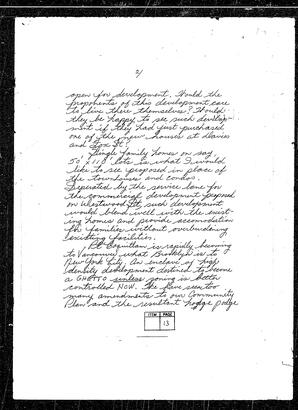 2/
open for development. Would the
proponents of this development care
to live there themselves? Would
they be happy to see such develop-
ment if they had just purchased
one of the new houses at Davies
and Fox St?
Single family homes on say
50' x 110' lots is what I would
like to see proposed in place of
the townhouses and condos.
Separated by the service lane for
the commercial development proposed
on Westwood St, such development
would blend well with the exist-
ing homes and provide accomodation
for families without overburdening
existing facilities.
Pt. Coquitlam is rapidly becoming
to Vancouver what Brooklyn is to
New York City. An enclave of high
density development destined to become
a GHETTO unless zoning is better
controlled NOW. We have seen too
many amendments to our Community
Plan and the resultant hodge podge
ITEM PAGE
13